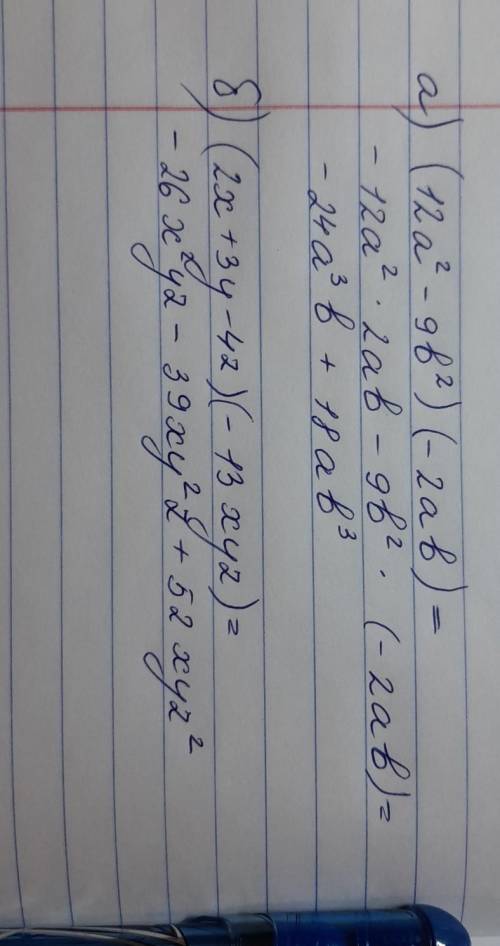 а) (12a² - 9b²)(-2ab) =
-12a² · 2ab - 9b² · (-2ab) =
-24a³b + 18ab³
б) (2x + 3y - 4z)(-13xyz) =
-26x²yz - 39xy²z + 52xyz²